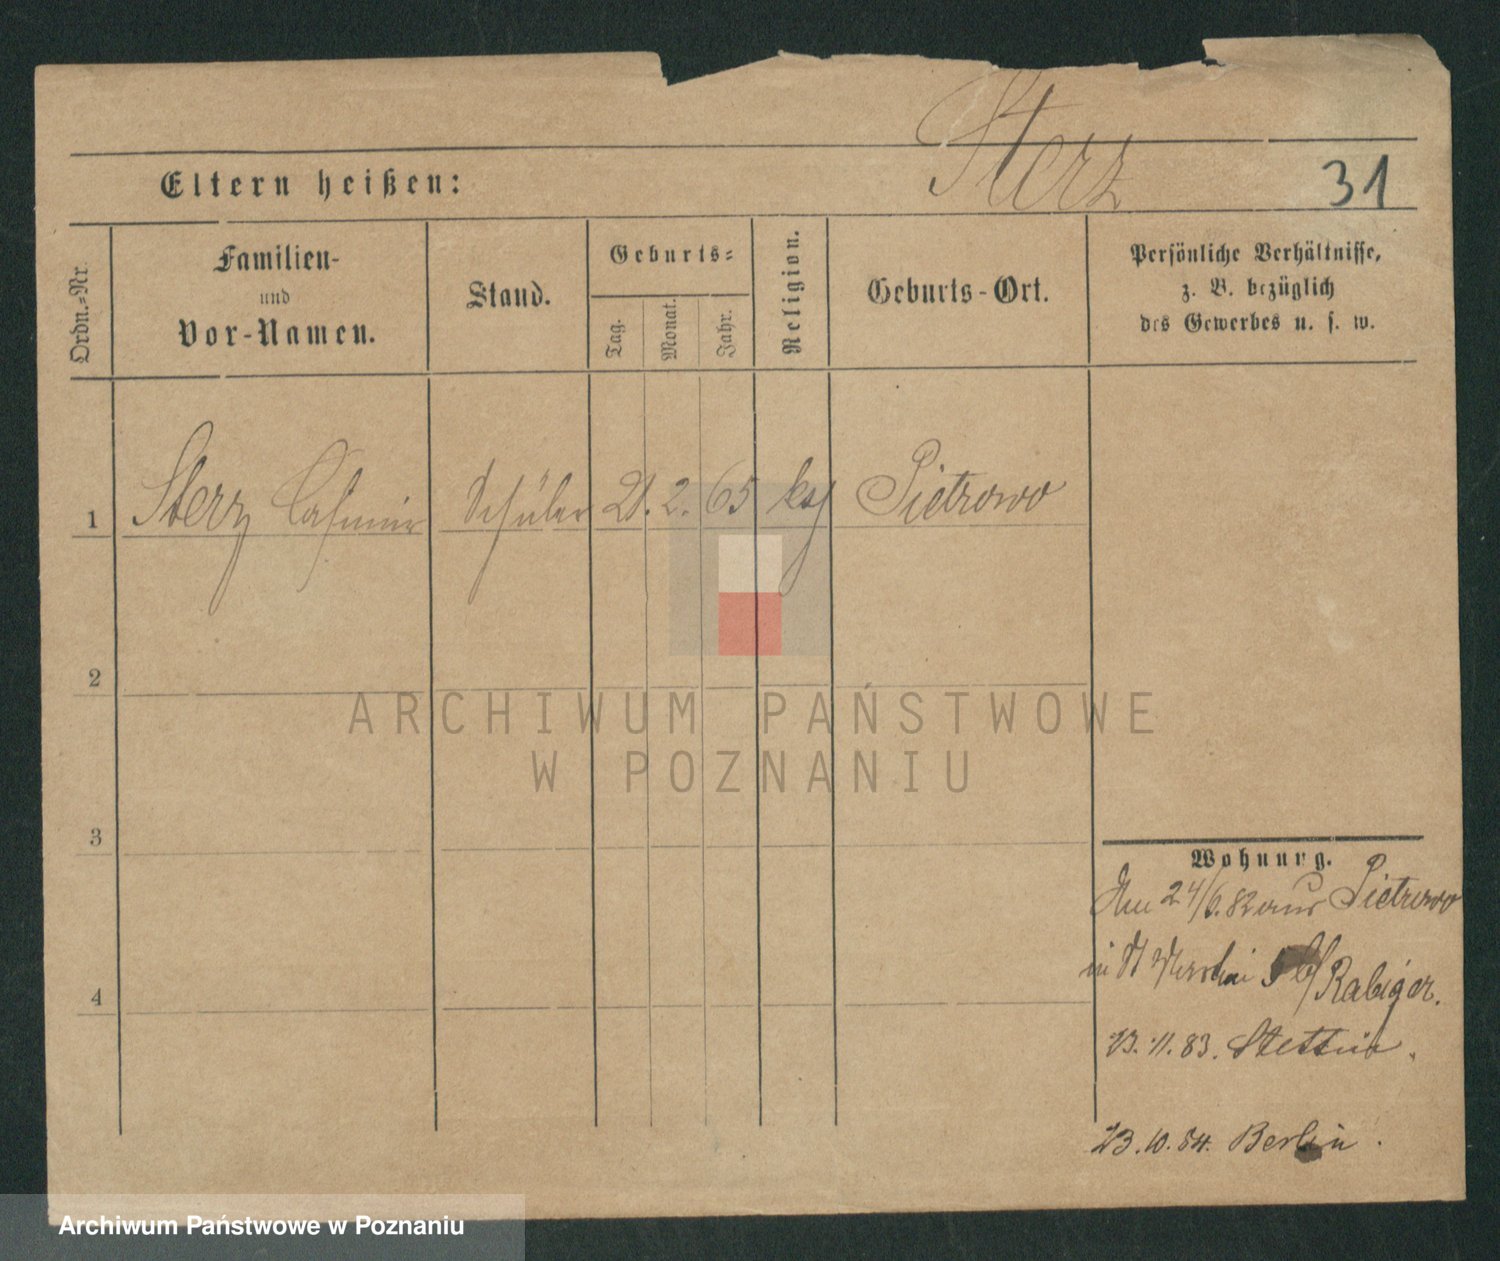 Sterz
Eltern heißen:
31
Ordn.=Nr.
Familien-
und
Vor-Namen.
Stand.
Geburts=
Tag.
Monat.
Jahr.
Religion.
Geburts-Ort.
Persönliche Verhältnisse,
z. B. bezüglich
des Gewerbes u. s. w.
1 Sterz Casimir Schüler 21. 2. 65 Pietrowo
2
ARCHIWUM PAŃSTWOWE
W POZNANIU
3
Wohnung.
24/6. 82 aus Pietrowo
in St 5 b/ Rabiger.
4
23. 11. 83. Stettin.
23. 10. 84. Berlin.
Archiwum Państwowe w Poznaniu